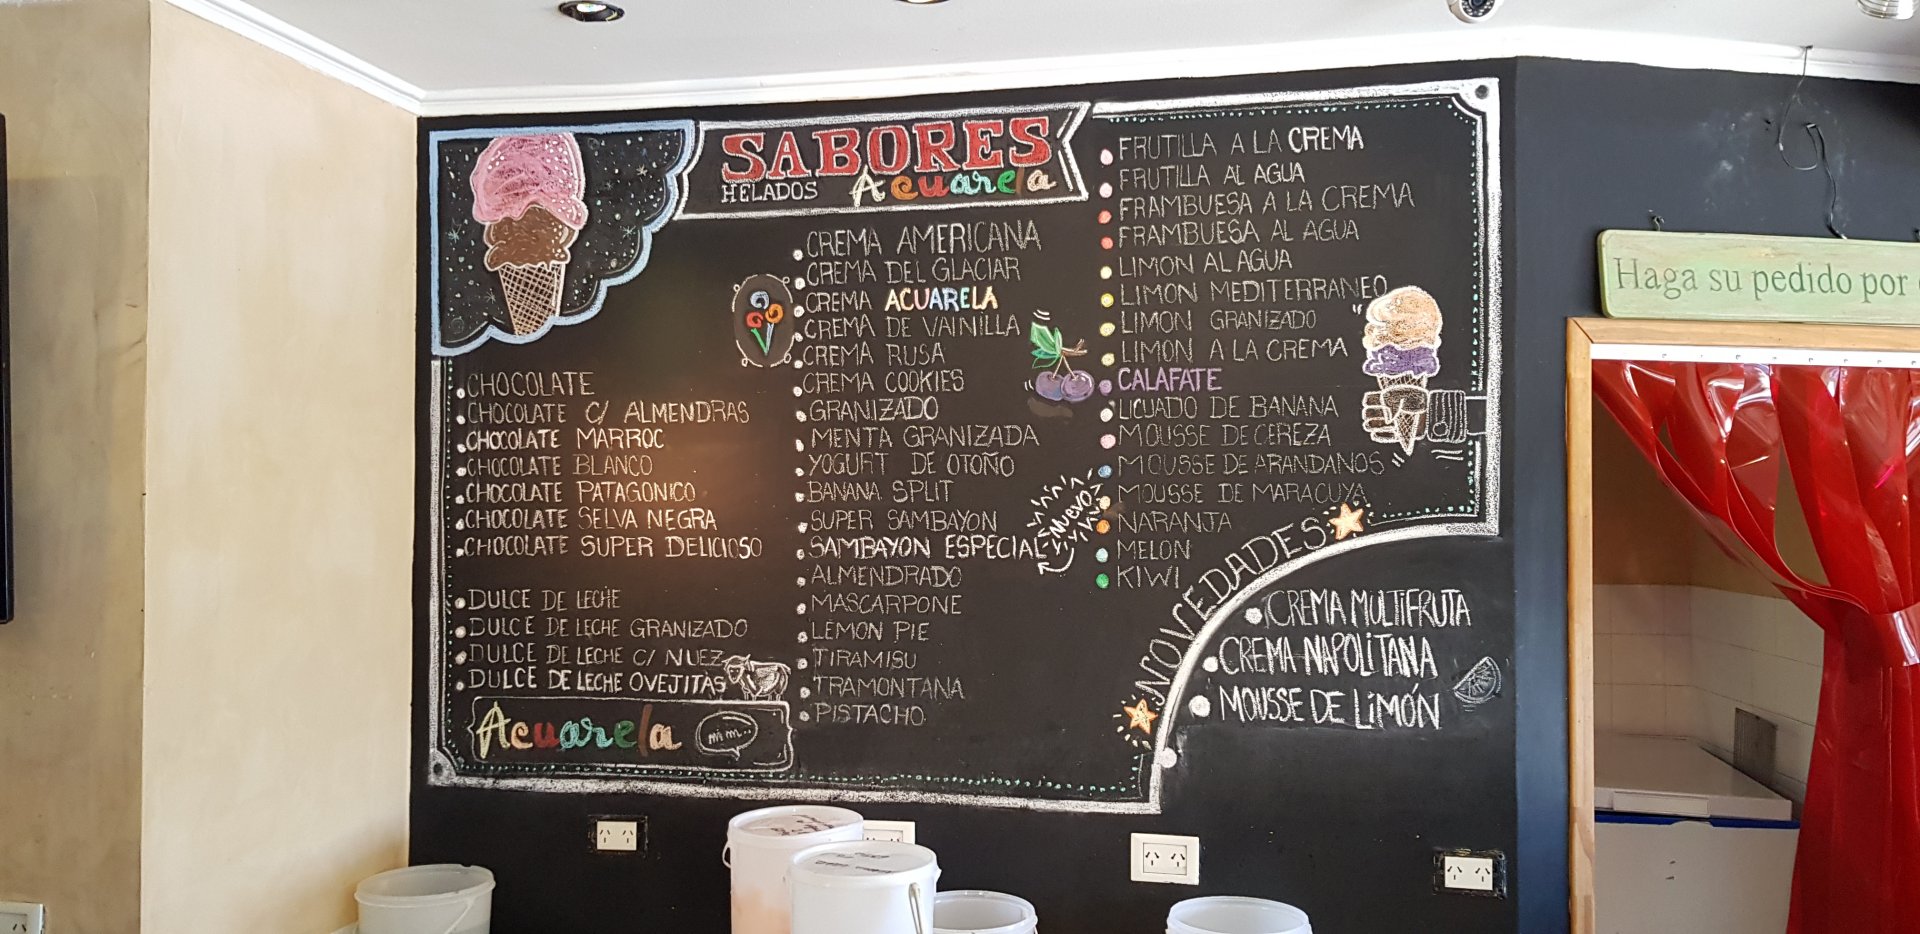 SABORES
HELADOS Acuarela
CHOCOLATE
CHOCOLATE C/ ALMENDRAS
CHOCOLATE MARROC
CHOCOLATE BLANCO
CHOCOLATE PATAGONICO
CHOCOLATE SELVA NEGRA
CHOCOLATE SUPER DELICIOSO
DULCE DE LECHE
DULCE DE LECHE GRANIZADO
DULCE DE LECHE C/ NUEZ
DULCE DE LECHE OVEJITAS
Acuarela
mim...
CREMA AMERICANA
CREMA DEL GLACIAR
CREMA ACUARELA
CREMA DE VAINILLA
CREMA RUSA
CREMA COOKIES
GRANIZADO
MENTA GRANIZADA
YOGURT DE OTOÑO
BANANA SPLIT
SUPER SAMBAYON
SAMBAYON ESPECIAL
NUEVO
ALMENDRADO
MASCARPONE
LEMON PIE
TIRAMISU
TRAMONTANA
PISTACHO
FRUTILLA A LA CREMA
FRUTILLA AL AGUA
FRAMBUESA A LA CREMA
FRAMBUESA AL AGUA
LIMON AL AGUA
LIMON MEDITERRANEO
LIMON GRANIZADO
LIMON A LA CREMA
CALAFATE
LICUADO DE BANANA
MOUSSE DE CEREZA
MOUSSE DE ARANDANOS
MOUSSE DE MARACUYA
NARANJA
MELON
KIWI
NOVEDADES
CREMA MULTIFRUTA
CREMA NAPOLITANA
MOUSSE DE LiMÓN
Haga su pedido por